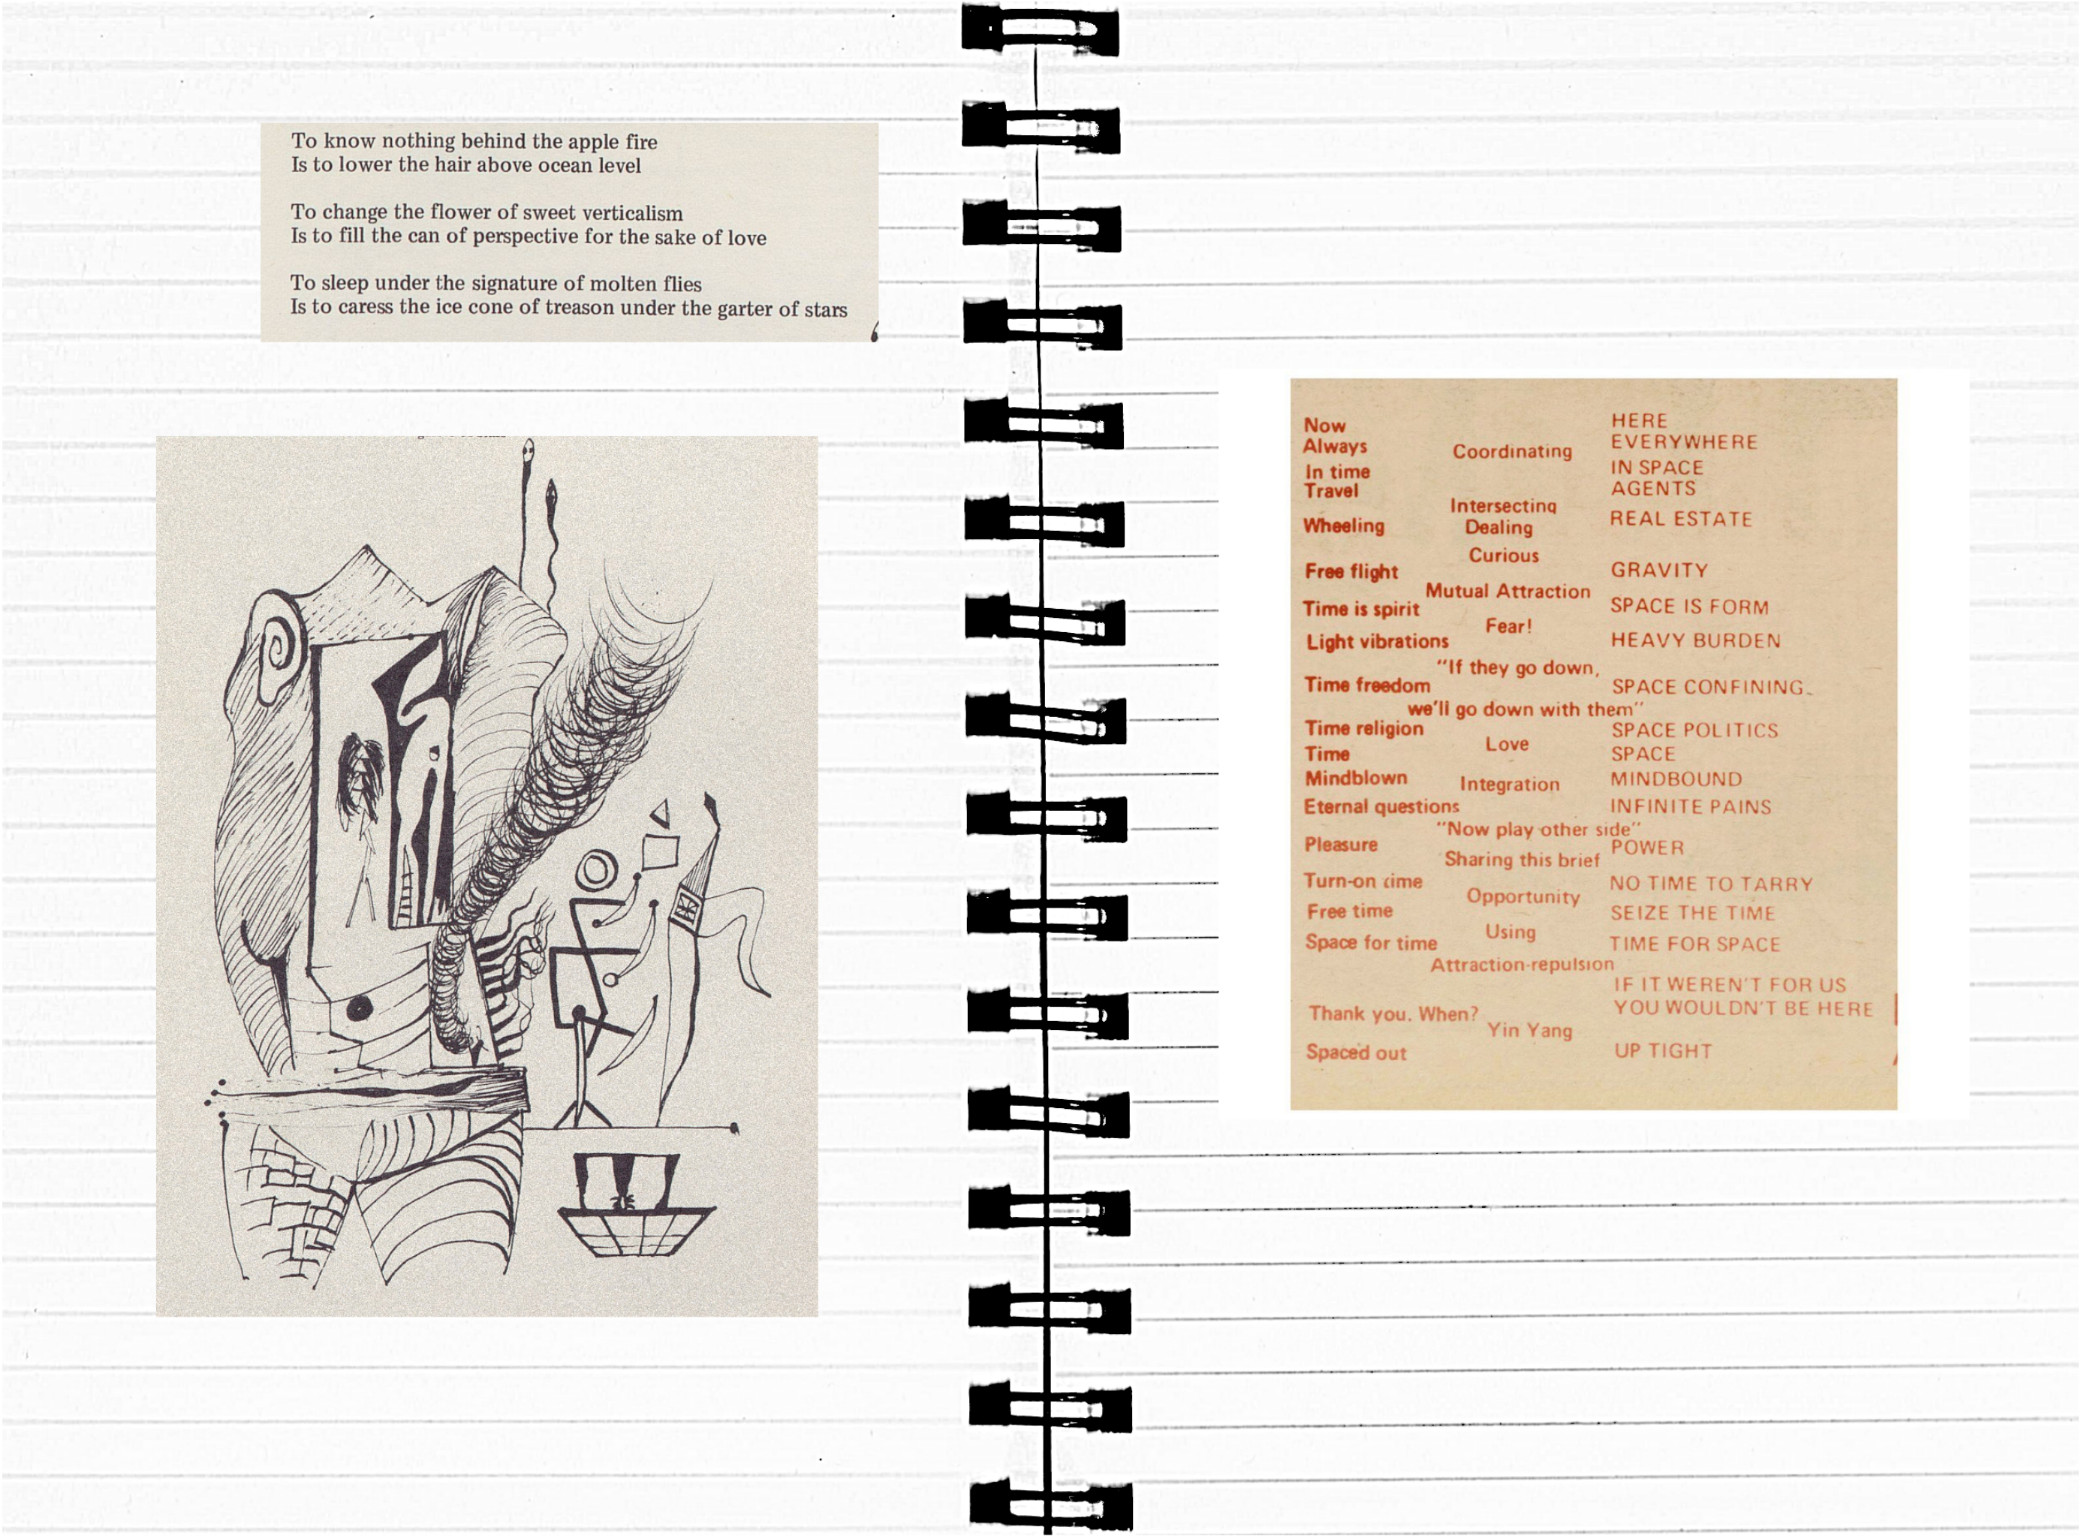 To know nothing behind the apple fire
Is to lower the hair above ocean level
To change the flower of sweet verticalism
Is to fill the can of perspective for the sake of love
To sleep under the signature of molten flies
Is to caress the ice cone of treason under the garter of stars
Now HERE
Always Coordinating EVERYWHERE
In time IN SPACE
Travel AGENTS
Intersecting
Wheeling Dealing REAL ESTATE
Curious
Free flight GRAVITY
Mutual Attraction
Time is spirit SPACE IS FORM
Fear!
Light vibrations HEAVY BURDEN
"If they go down,
Time freedom SPACE CONFINING
we'll go down with them"
Time religion SPACE POLITICS
Love
Time SPACE
Mindblown Integration MINDBOUND
Eternal questions INFINITE PAINS
"Now play other side"
Pleasure POWER
Sharing this brief
Turn-on time NO TIME TO TARRY
Opportunity
Free time SEIZE THE TIME
Using
Space for time TIME FOR SPACE
Attraction-repulsion
IF IT WEREN'T FOR US
Thank you. When? YOU WOULDN'T BE HERE
Yin Yang
Spaced out UP TIGHT